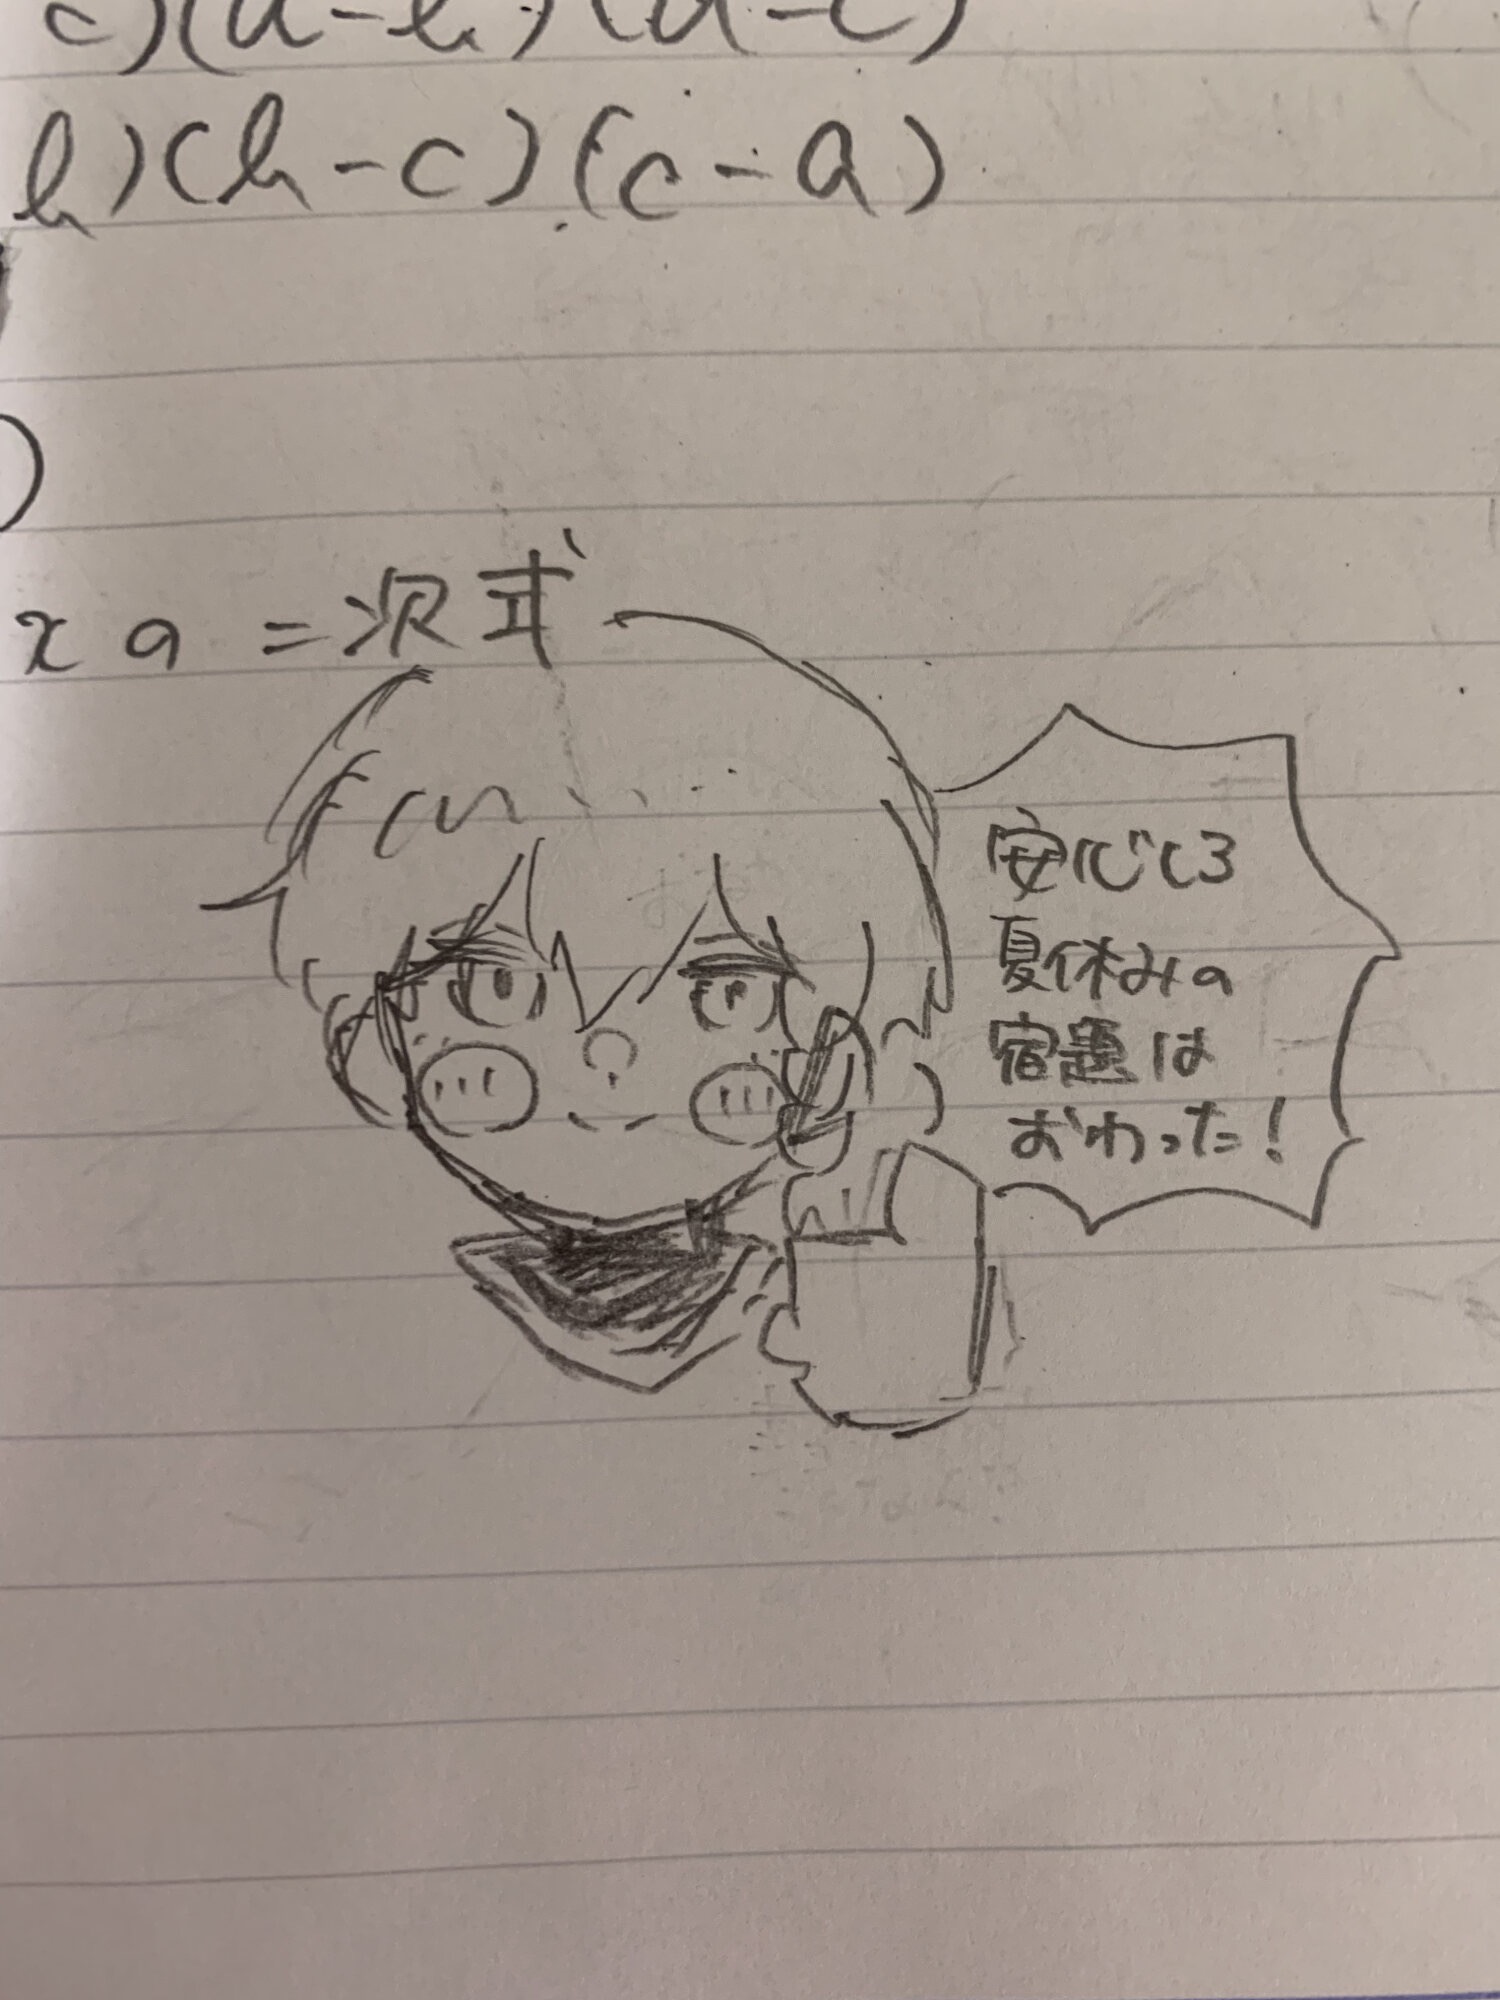 c)(a-b)(a-c)
b)(b-c)(c-a)
)
xの二次式
安心しろ
夏休みの
宿題は
おわった!